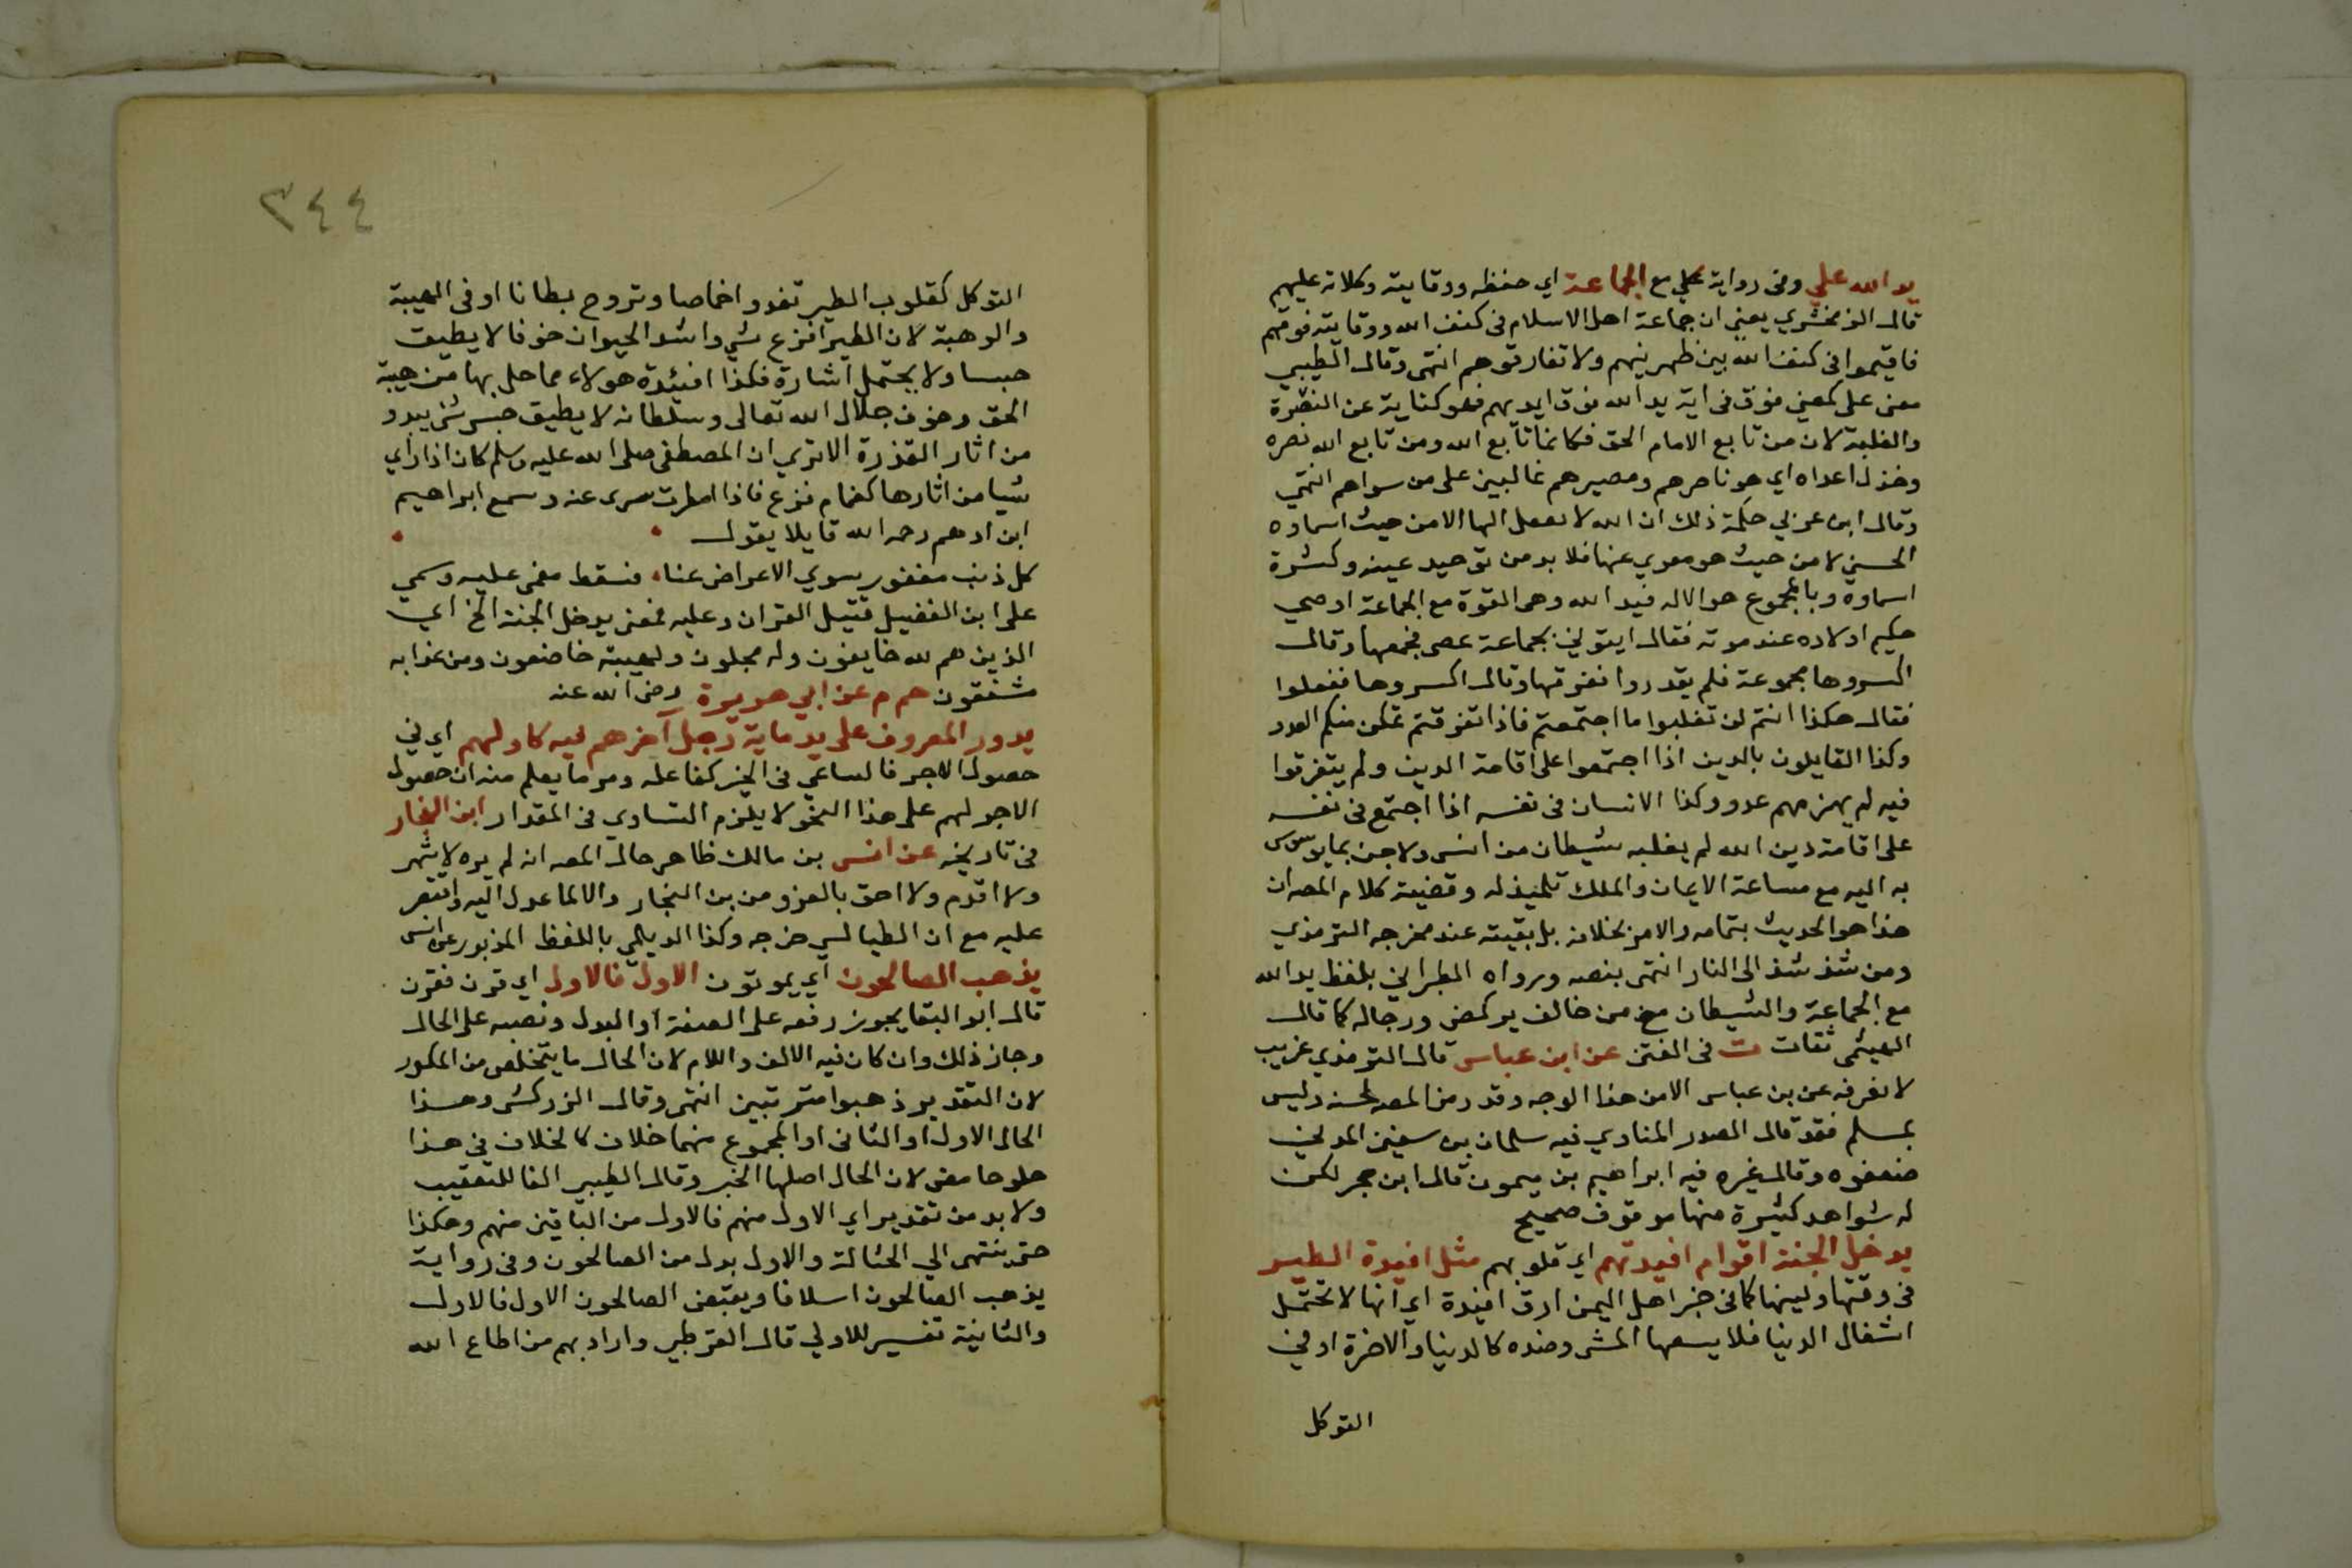 يد الله علي وفى رواية لحلي مع الجماعة اي حفظه ووقايته وكلاته عليهم
قال الزمخشري يعني ان جماعة اهل الاسلام فى كنف الله ووقايته فوقهم
فاقيموا فى كنف الله بين ظهرينهم ولا تفارقوهم انتهى وقال الطيبي
معنى على كمعنى فوق فى اية يد الله فوق ايديهم فهو كناية عن النصرة
والغلبة لان من تابع الامام الحق فكانما تابع الله ومن تابع الله نصره
وخذل اعداه اي هو ناصرهم ومصيرهم غالبين على من سواهم انتهي
وقال ابن عربي حكمة ذلك ان الله لا يعقل الها الا من حيث اسماوه
الحسني لا من حيث هو معري عنها فلا بد من توحيد عينه وكثرة
اسماوه وبالمجموع هو الاله فيد الله وهي القوة مع الجماعة اوصي
حكيم اولاده عند موته فقال ايتوني بجماعة عصى فجمعها وقال
اكسروها مجموعة فلم يقدروا ففرقها وقال اكسروها ففعلوا
فقال هكذا انتم لن تغلبوا ما اجتمعتم فاذا تفرقتم تمكن منكم العدو
وكذا القايلون بالدين اذا اجتمعوا على اقامة الدين ولم يتفرقوا
فيه لم يهزمهم عدو وكذا الانسان فى نفسه اذا اجتمع فى نفسه
على اقامة دين الله لم يغلبه شيطان من انس ولا جن بما يوسوس
به اليه مع مساعة الايمان والملك تلميذ له وقضية كلام المص ان
هذا هو الحديث بتمامه والامر بخلافه بل بقيته عند مخرجه الترمذي
ومن شذ شذ الى النار انتهى بنصه ورواه الطبراني بلفظ يد الله
مع الجماعة والشيطان مع من خالف يركض ورجاله كما قال
الهيثمى ثقات ت فى الفتن عن ابن عباس قال الترمذي غريب
لا نعرفه عن بن عباس الا من هذا الوجه وقد رمز المص لحسنه وليس
بمسلم فقد قال الصدر المناوي فيه سلمان بن سفين المدني
ضعفوه وقال غيره فيه ابراهيم بن ميمون قال ابن حجر لكن
له شواهد كثيرة منها موقوف صحيح
يدخل الجنة اقوام افيدتهم اي قلوبهم مثل افيدة الطير
فى رقتها ولينها كما فى خبر اهل اليمن ارق افيدة اي انها لا تحتمل
اشغال الدنيا فلا يسعها الشى وضده كالدنيا والاخرة او في
التوكل
٣٤٤
التوكل كقلوب الطير تغدوا خماصا وتروح بطانا او فى الهيبة
والرهبة لان الطير افزع شي واشد الحيوان خوفا لا يطيق
حبسا ولا يحتمل اشارة فكذا افيدة هولاء مما حل بها من هيبة
الحق وخوف جلال الله تعالى وسلطانه لا يطيق حبس شى يبدو
من اثار القدرة الا تري ان المصطفى صلى الله عليه وسلم كان اذا راي
شيا من اثارها كغمام فزع فاذا امطرت سرى عنه وسمع ابراهيم
ابن ادهم رحمه الله قايلا يقول
كل ذنب مغفور سوي الاعراض عنا فسقط مغمى عليه وسمي
على ابن الفضيل قتيل القران وعليه فمعنى يدخل الجنة الخ اي
الذين هم لله خايفون وله مجلون ولهيبته خاضعون ومن عذابه
مشفقون حم م عن ابي هريرة رضى الله عنه
يدور المعروف على يد ماية رجل آخرهم فيه كاولهم اي في
حصول الاجر فالساعي فى الخير كفاعله ومر ما يعلم منه ان حصول
الاجر لهم على هذا النحو لا يلزم التساوي فى المقدار ابن النجار
فى تاريخه عن انس بن مالك ظاهر حال المص انه لم يره لاشهر
ولا اقدم ولا احق بالعزو من بن النجار والا لما عدل اليه واقتصر
عليه مع ان الطيالسي خرجه وكذا الديلمي باللفظ المزبور عن انس
يذهب الصالحون اي يموتون الاول فالاول اي قرن فقرن
قال ابو البقا يجوز رفعه على الصفة او البدل ونصبه على الحال
وجاز ذلك وان كان فيه الالف واللام لان الحال ما يتخلص من المكرر
لان التقدير ذهبوا مترتبين انتهى وقال الزركشى وهذا
الحال الاول او الثانى او المجموع منهما خلاف كالخلاف في هذا
حلو حامض لان الحال اصلها الخبر وقال الطيبي الفا للتعقيب
ولا بد من تقدير اي الاول منهم فالاول من الباقين منهم وهكذا
حتى ينتهى الي الحثالة والاول بدل من الصالحون وفى رواية
يذهب الصالحون اسلافا ويقبض الصالحون الاول فالاول
والثانية تفسير للاولي قال القرطبي واراد بهم من اطاع الله